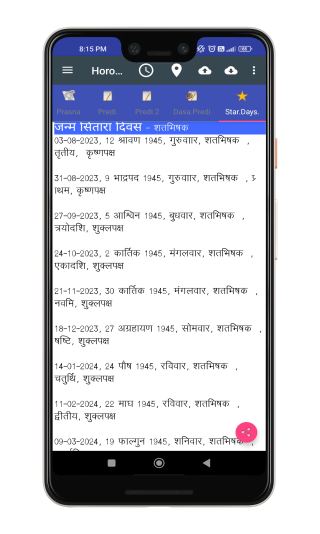 8:15 PM
Horo...
Prasna Predi. Predi 2 Dasa Predi. Star.Days.
जन्म सितारा दिवस - शतभिषक
03-08-2023, 12 श्रावण 1945, गुरुवाार, शतभिषक ,
तृतीय, कृष्णपक्ष
31-08-2023, 9 भाद्रपद 1945, गुरुवाार, शतभिषक , प्र
थम, कृष्णपक्ष
27-09-2023, 5 आश्विन 1945, बुधवार, शतभिषक ,
त्रयोदशि, शुक्लपक्ष
24-10-2023, 2 कार्तिक 1945, मंगलवार, शतभिषक ,
एकादशि, शुक्लपक्ष
21-11-2023, 30 कार्तिक 1945, मंगलवार, शतभिषक ,
नवमि, शुक्लपक्ष
18-12-2023, 27 अग्रहायण 1945, सोमवार, शतभिषक ,
षष्टि, शुक्लपक्ष
14-01-2024, 24 पौष 1945, रविवार, शतभिषक ,
चतुर्थि, शुक्लपक्ष
11-02-2024, 22 माघ 1945, रविवार, शतभिषक ,
द्वितीय, शुक्लपक्ष
09-03-2024, 19 फाल्गुन 1945, शनिवार, शतभिषक ,